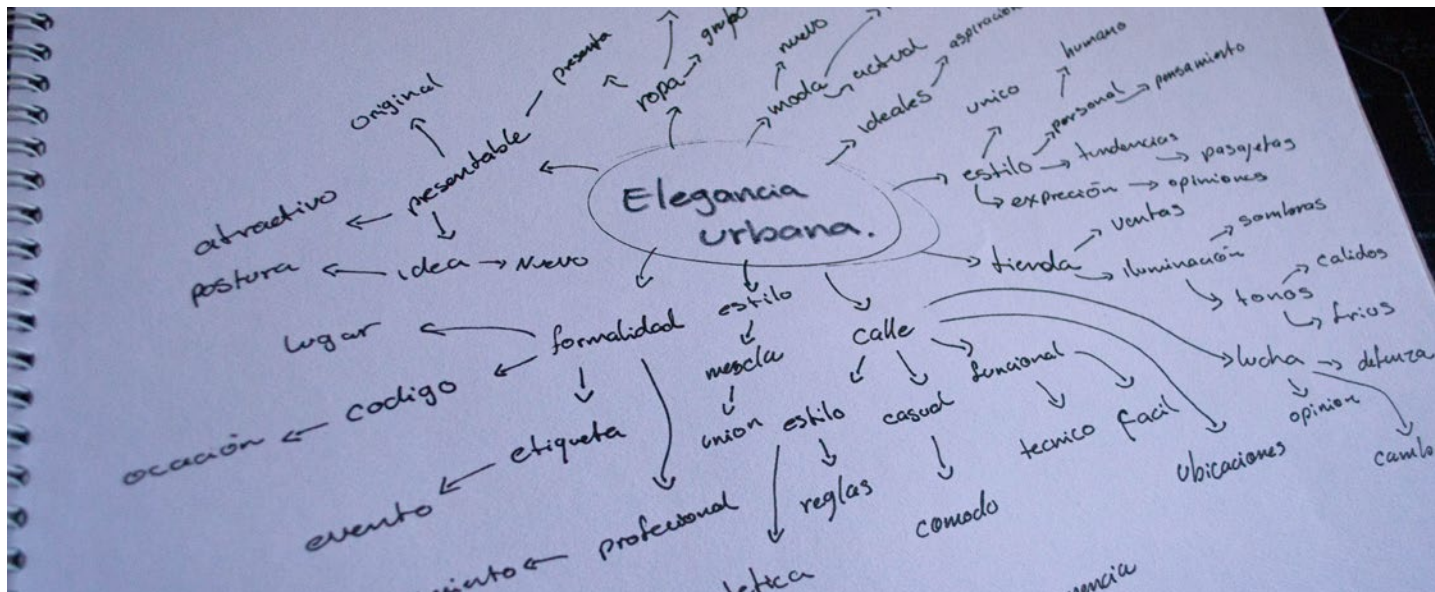 Elegancia
urbana.
presentable
original
atractivo
presenta
idea
nuevo
postura
ropa
grupo
moda
nuevo
actual
ideales
aspiración
estilo
unico
humano
personal
pensamiento
tendencias
pasajetas
expreción
opiniones
tienda
ventas
iluminación
sombras
tonos
calidos
frios
formalidad
lugar
codigo
ocación
etiqueta
evento
profecional
estilo
mezcla
union
calle
estilo
reglas
casual
comodo
funcional
tecnico
facil
Ubicaciones
lucha
defenza
opinion